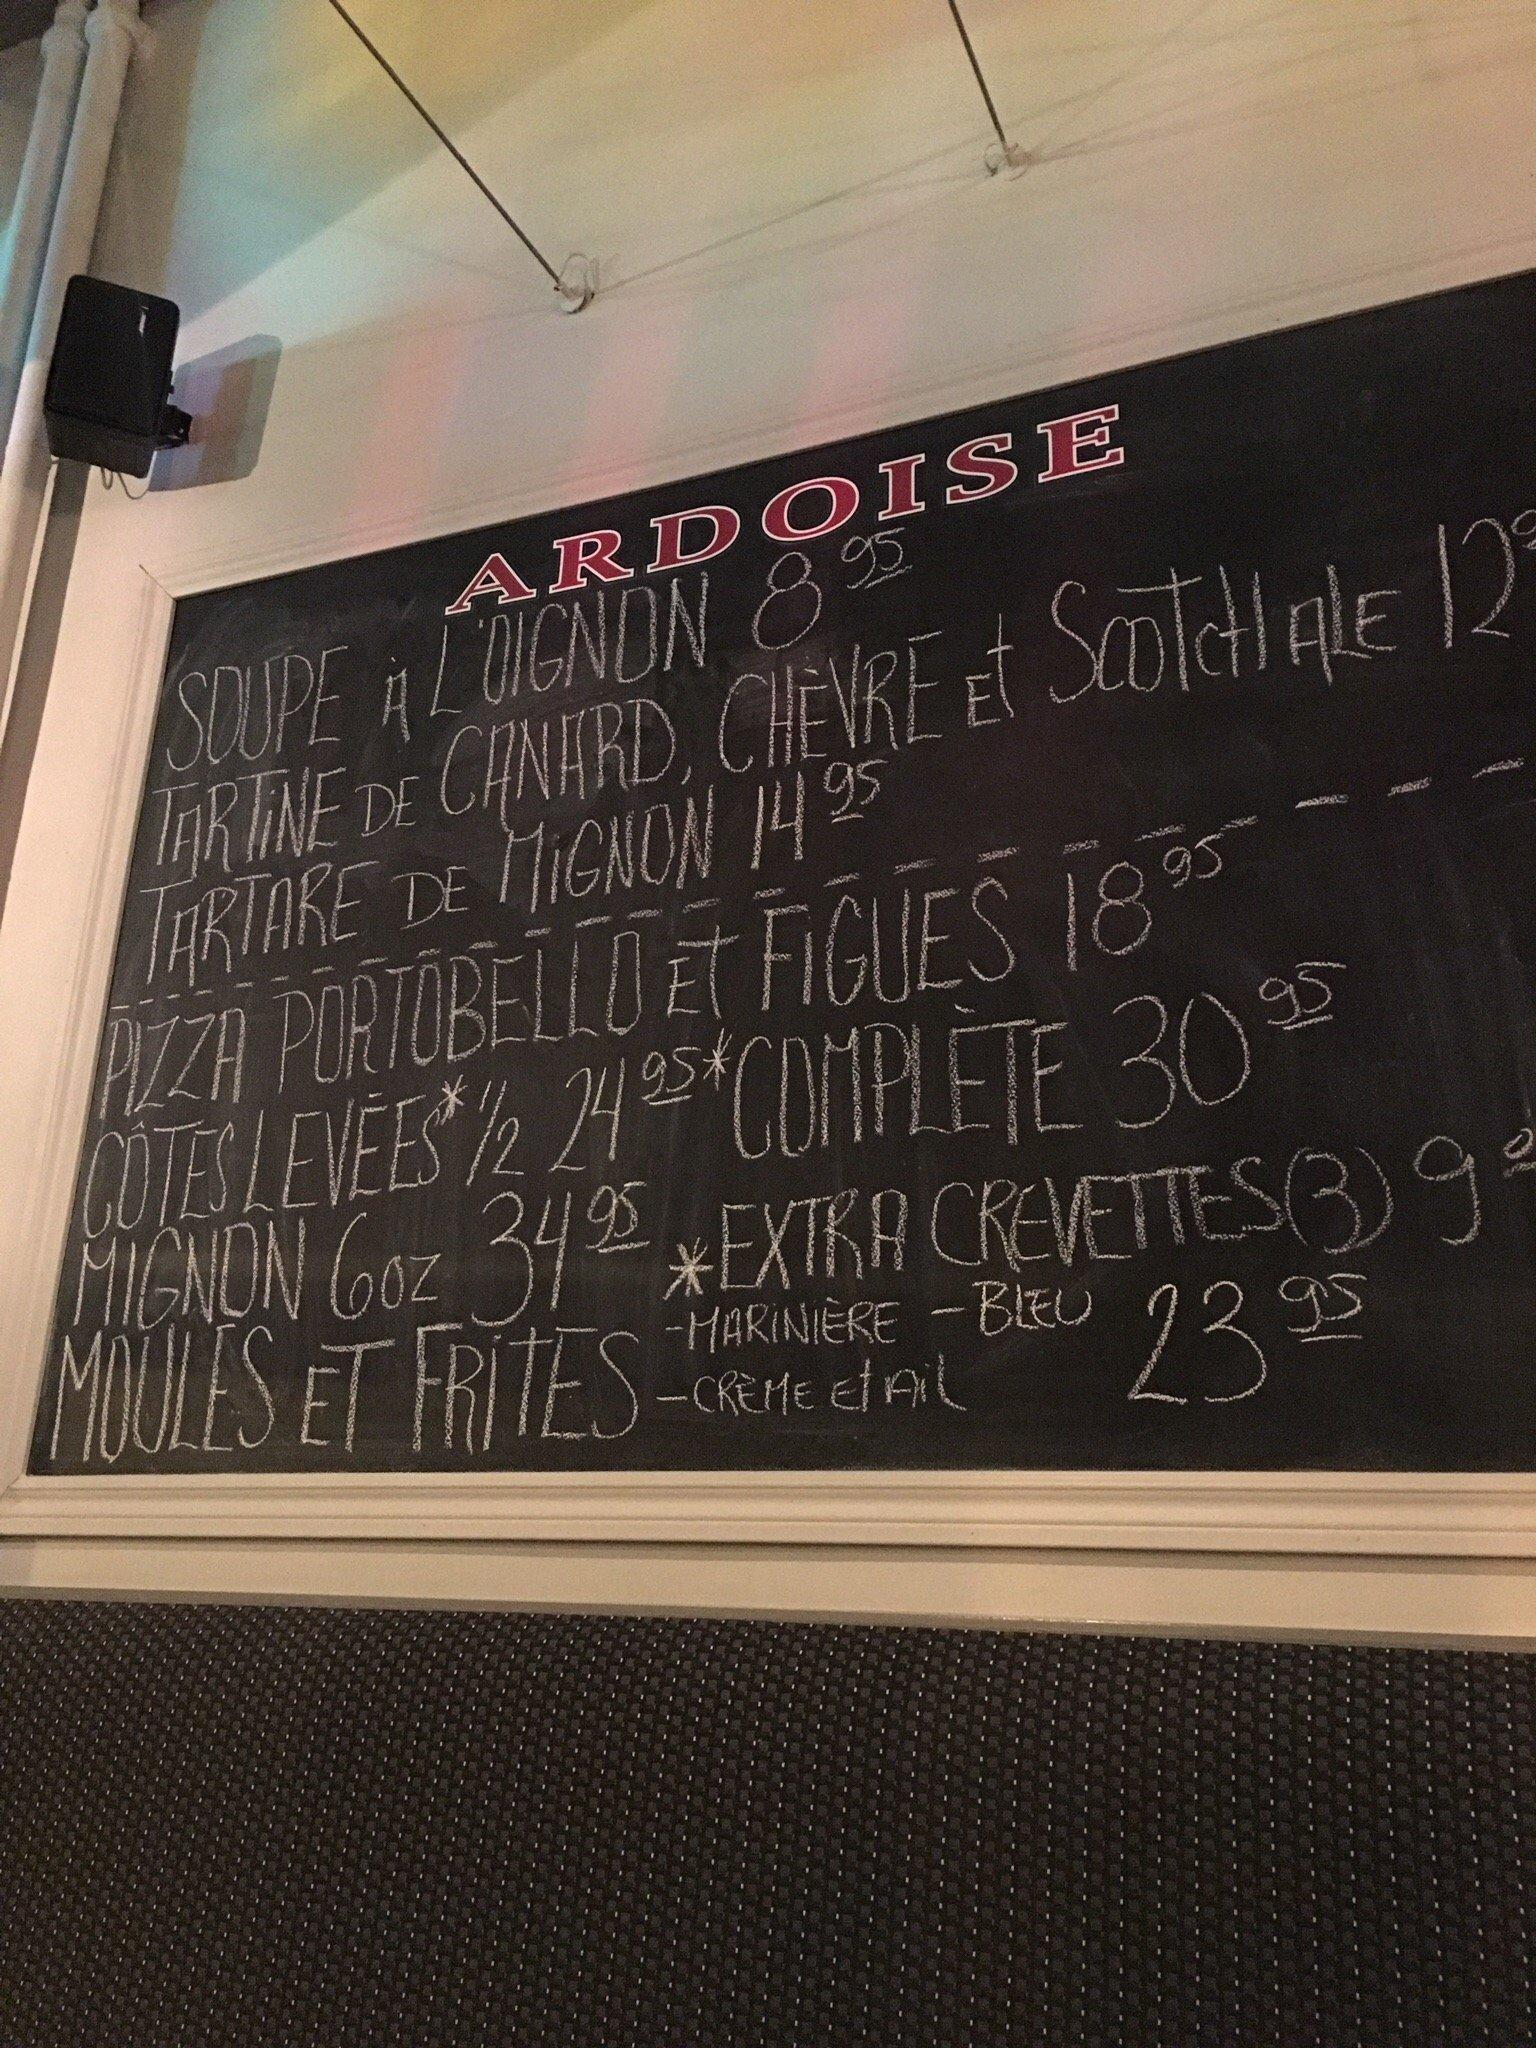 ARDOISE
SOUPE À L'OIGNON 8 95
TARTINE DE CANARD, CHÈVRE et SCOTCH ALE 12
TARTARE DE MIGNON 14 95
PIZZA PORTOBELLO et FIGUES 18 95
CÔTES LEVÉES * 1/2 24 95 * COMPLÈTE 30 95
MIGNON 6oz 34 95 * EXTRA CREVETTES (3) 9
MOULES ET FRITES - MARINIÈRE - BLEU 23 95
- CRÈME et AIL